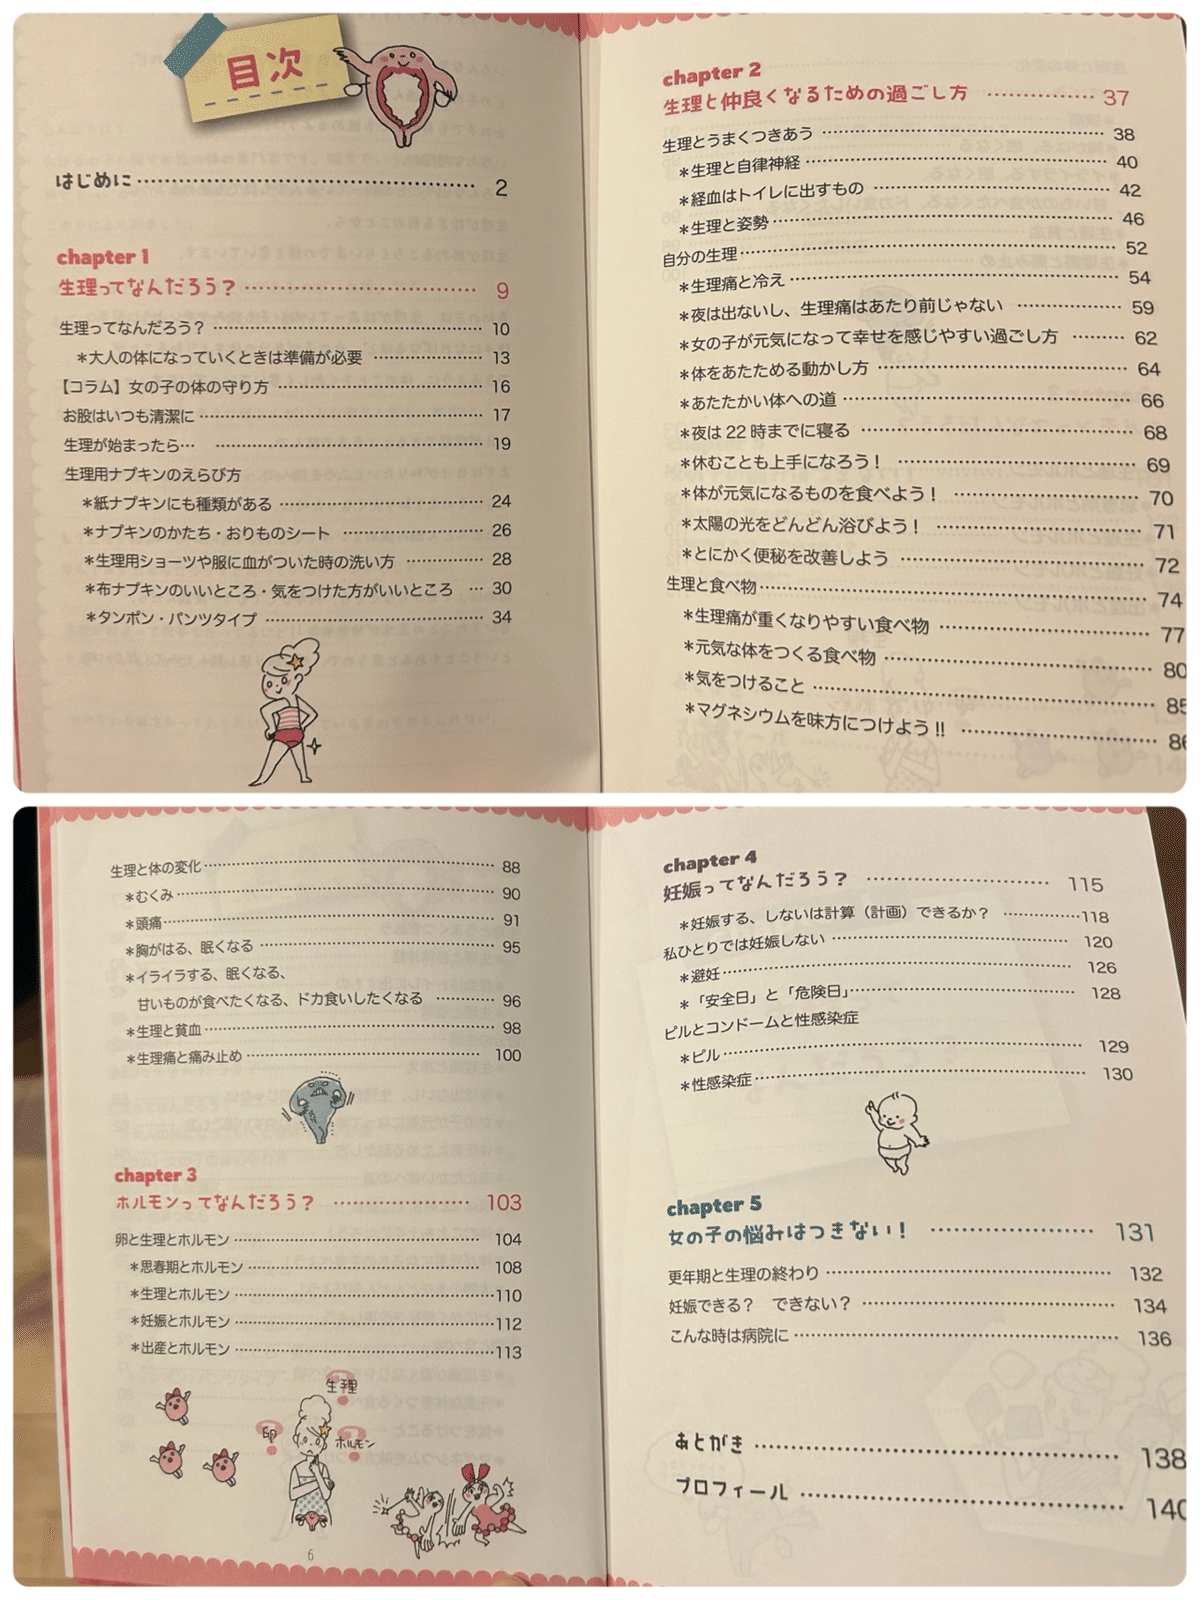 目次
はじめに 2
chapter 1
生理ってなんだろう？ 9
生理ってなんだろう？ 10
＊大人の体になっていくときは準備が必要 13
【コラム】女の子の体の守り方 16
お股はいつも清潔に 17
生理が始まったら… 19
生理用ナプキンのえらび方
＊紙ナプキンにも種類がある 24
＊ナプキンのかたち・おりものシート 26
＊生理用ショーツや服に血がついた時の洗い方 28
＊布ナプキンのいいところ・気をつけた方がいいところ 30
＊タンポン・パンツタイプ 34
chapter 2
生理と仲良くなるための過ごし方 37
生理とうまくつきあう 38
＊生理と自律神経 40
＊経血はトイレに出すもの 42
＊生理と姿勢 46
自分の生理 52
＊生理痛と冷え 54
＊夜は出ないし、生理痛はあたり前じゃない 59
＊女の子が元気になって幸せを感じやすい過ごし方 62
＊体をあたためる動かし方 64
＊あたたかい体への道 66
＊夜は22時までに寝る 68
＊休むことも上手になろう！ 69
＊体が元気になるものを食べよう！ 70
＊太陽の光をどんどん浴びよう！ 71
＊とにかく便秘を改善しよう 72
生理と食べ物 74
＊生理痛が重くなりやすい食べ物 77
＊元気な体をつくる食べ物 80
＊気をつけること 85
＊マグネシウムを味方につけよう!! 86
生理と体の変化 88
＊むくみ 90
＊頭痛 91
＊胸がはる、眠くなる 95
＊イライラする、眠くなる、
甘いものが食べたくなる、ドカ食いしたくなる 96
＊生理と貧血 98
＊生理痛と痛み止め 100
chapter 3
ホルモンってなんだろう？ 103
卵と生理とホルモン 104
＊思春期とホルモン 108
＊生理とホルモン 110
＊妊娠とホルモン 112
＊出産とホルモン 113
生理
卵
ホルモン
6
chapter 4
妊娠ってなんだろう？ 115
＊妊娠する、しないは計算（計画）できるか？ 118
私ひとりでは妊娠しない 120
＊避妊 126
＊「安全日」と「危険日」 128
ピルとコンドームと性感染症
＊ピル 129
＊性感染症 130
chapter 5
女の子の悩みはつきない！ 131
更年期と生理の終わり 132
妊娠できる？　できない？ 134
こんな時は病院に 136
あとがき 138
プロフィール 140